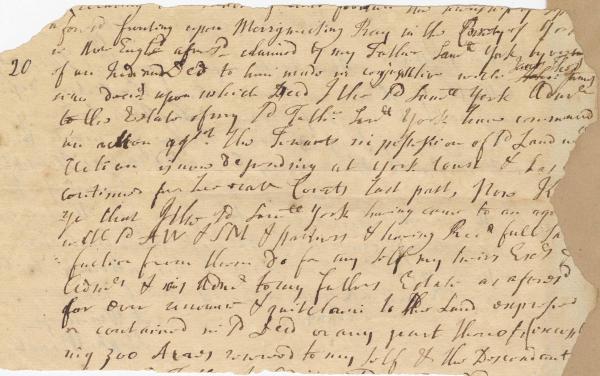 afores:d fronting upon Merrymeeting Bay in the County of York
in New Engld afores:d claimed by my Father Sam:ll York by virtue
20
of an Indian Deed to him made in conjunction with
since deced upon which Deed I the s:d Sam:ll York Adm:r
to the Estate of my s:d Father Sam:ll York have commenced
an action ag:st the Tenants in possession of s:d Land w
Action is now depending at York Court & has
continued for several Courts last past, Now K
ye that I the s:d Sam:ll York having come to an agre
with s:d AW & SM & partners & having Rec:d full sa
faction from them do for my self my heirs Exe:rs
Adm:rs & as Adm:r to my fathers Estate as afores:d
for ever renounce & quitclaim to the Land expressed
or contained in s:d Deed or any part thereof (except
ing 300 Acres reserved to my self & the Descendant